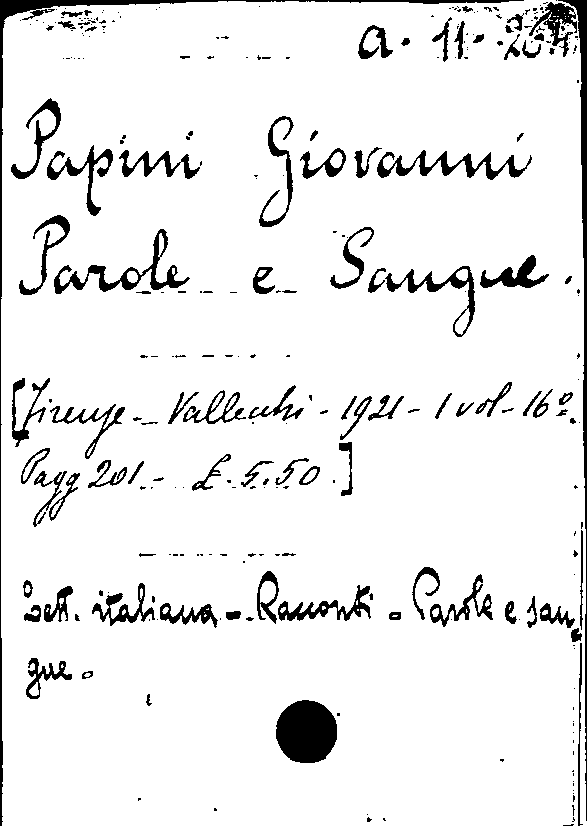 a. 11. 264
Papini Giovanni
Parole e Sangue.
[Firenze - Vallecchi - 1921 - 1 vol - 16º.
Pagg 201 - £. 5.50.]
Lett. italiana - Racconti - Parole e san-
gue.